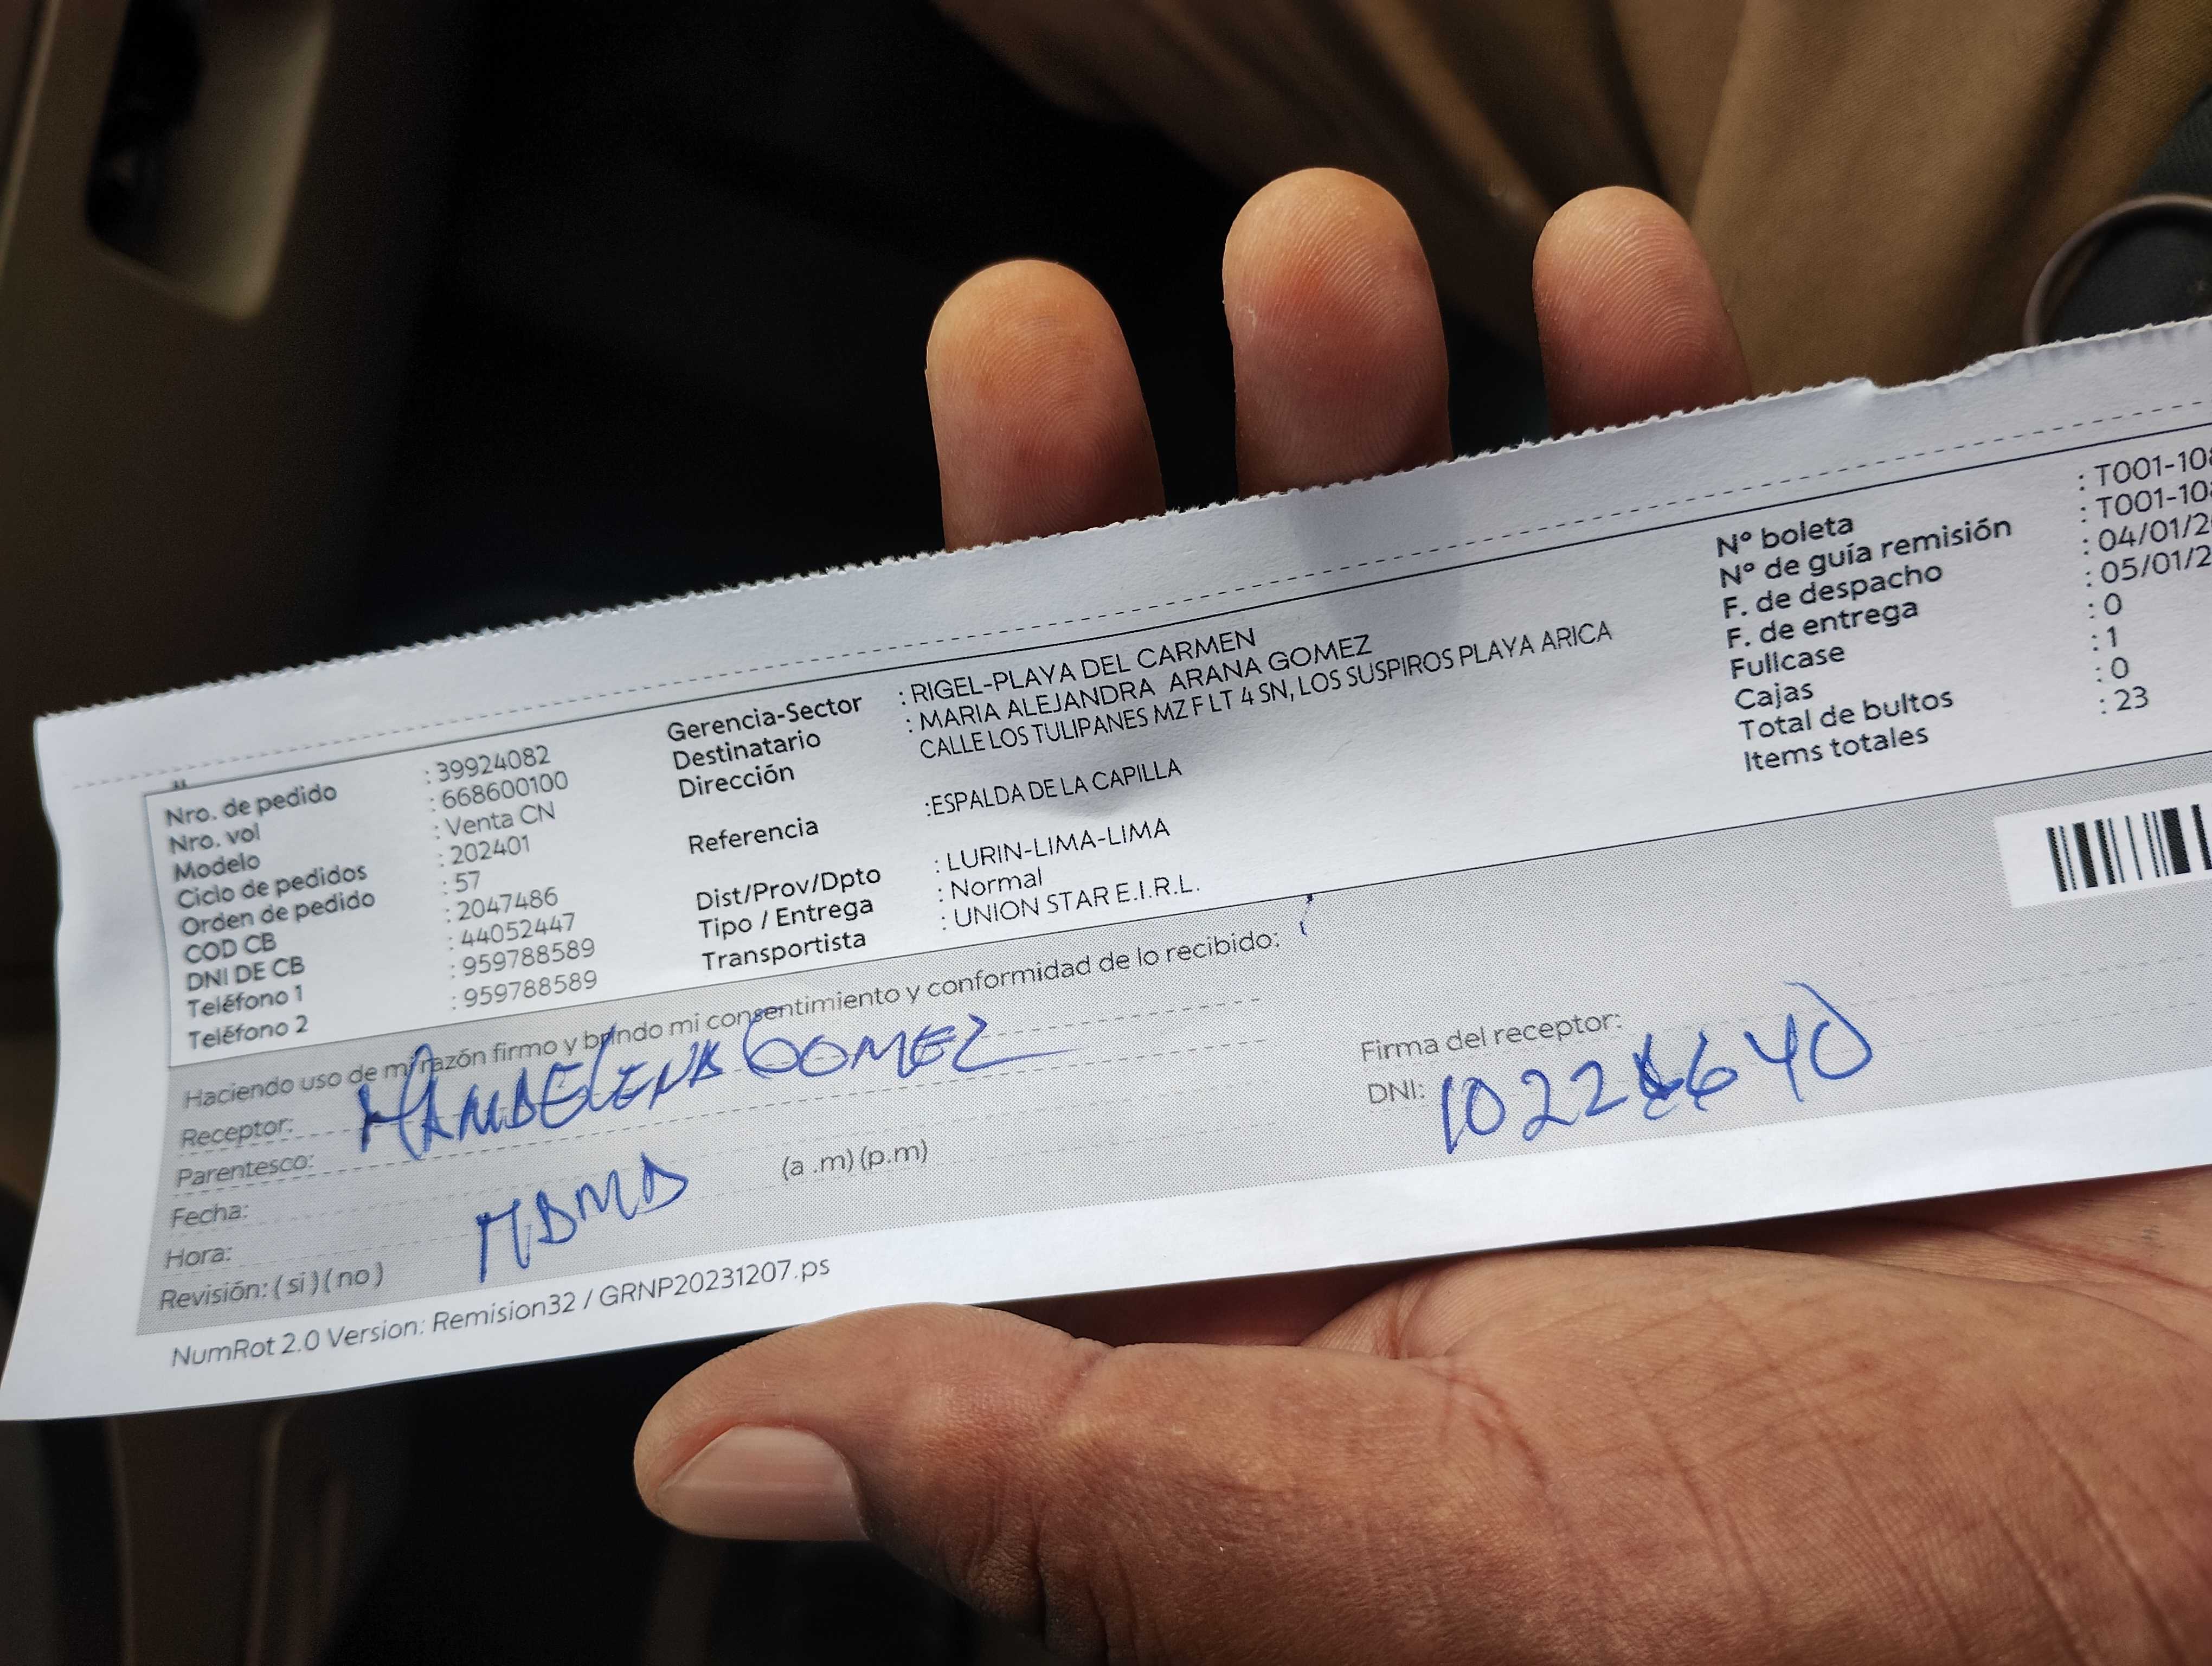 Nro. de pedido : 39924082
Nro. vol : 668600100
Modelo : Venta CN
Ciclo de pedidos : 202401
Orden de pedido : 57
COD CB : 2047486
DNI DE CB : 44052447
Teléfono 1 : 959788589
Teléfono 2 : 959788589
Gerencia-Sector : RIGEL-PLAYA DEL CARMEN
Destinatario : MARIA ALEJANDRA ARANA GOMEZ
Dirección CALLE LOS TULIPANES MZ F LT 4 SN, LOS SUSPIROS PLAYA ARICA
Referencia :ESPALDA DE LA CAPILLA
Dist/Prov/Dpto : LURIN-LIMA-LIMA
Tipo / Entrega : Normal
Transportista : UNION STAR E.I.R.L.
Nº boleta : T001-108
Nº de guía remisión : T001-108
F. de despacho : 04/01/2
F. de entrega : 05/01/2
Fullcase : 0
Cajas : 1
Total de bultos : 0
Items totales : 23
Haciendo uso de mi razón firmo y brindo mi consentimiento y conformidad de lo recibido:
Receptor: GOMEZ
Parentesco:
Fecha:
Hora: MAMA (a .m) (p.m)
Revisión: ( si ) ( no )
Firma del receptor:
DNI:
NumRot 2.0 Version: Remision32 / GRNP20231207.ps